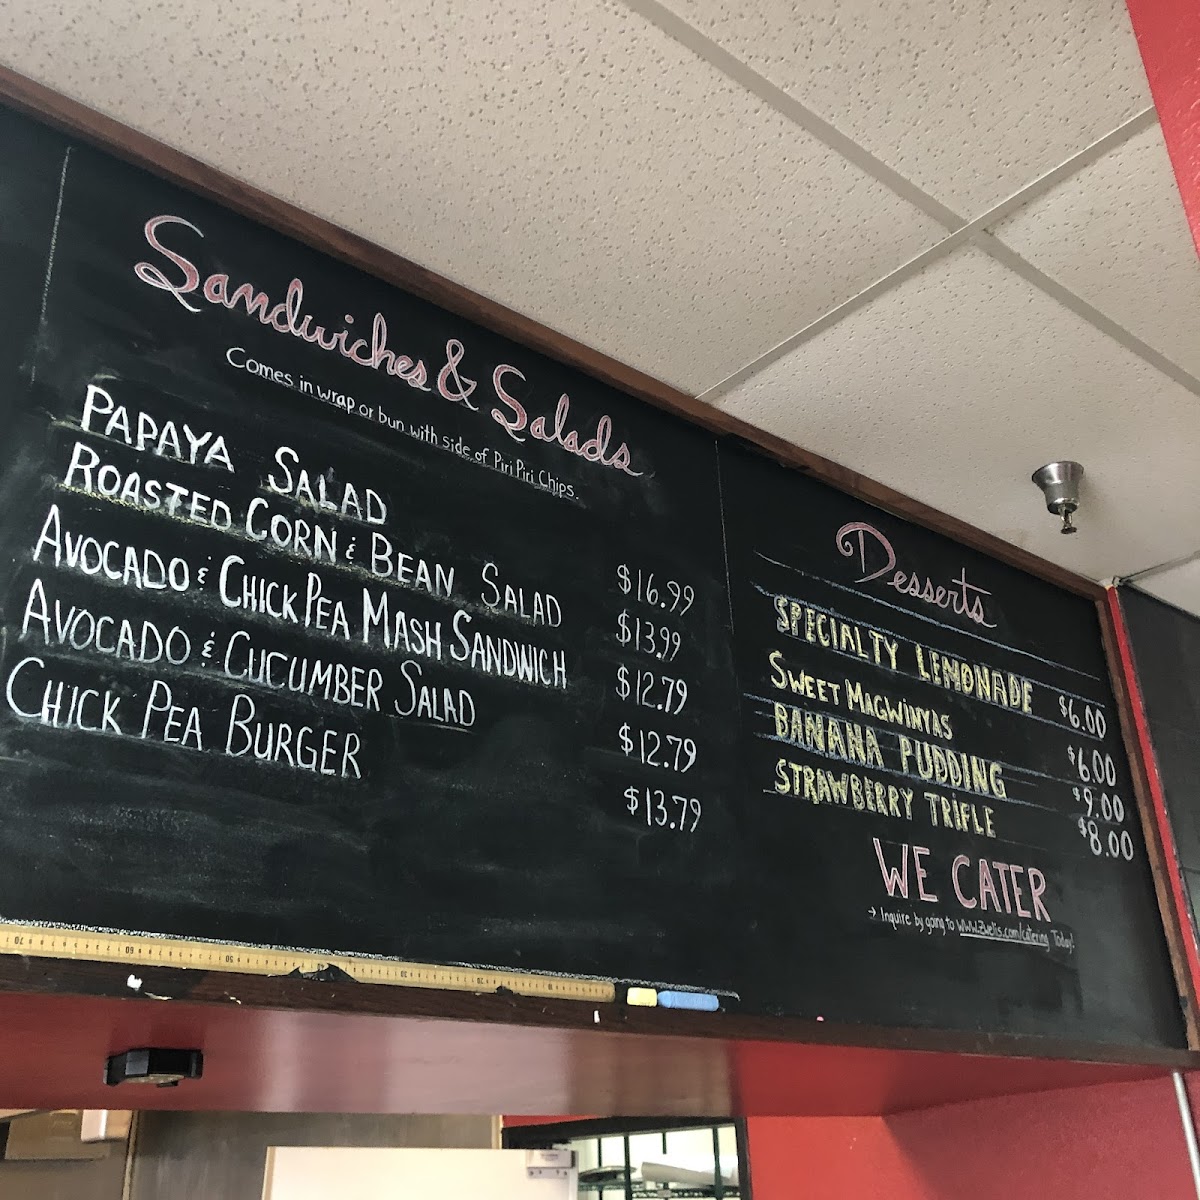 Sandwiches & Salads
Comes in wrap or bun with side of Piri Piri Chips.
PAPAYA SALAD $16.99
ROASTED CORN & BEAN SALAD $13.99
AVOCADO & CHICKPEA MASH SANDWICH $12.79
AVOCADO & CUCUMBER SALAD $12.79
CHICK PEA BURGER $13.79
Desserts
SPECIALTY LEMONADE $6.00
SWEET MAGWINYAS $6.00
BANANA PUDDING $9.00
STRAWBERRY TRIFLE $8.00
WE CATER
→ Inquire by going to www.zwetis.com/catering Today!
70 60 50 30 20 10